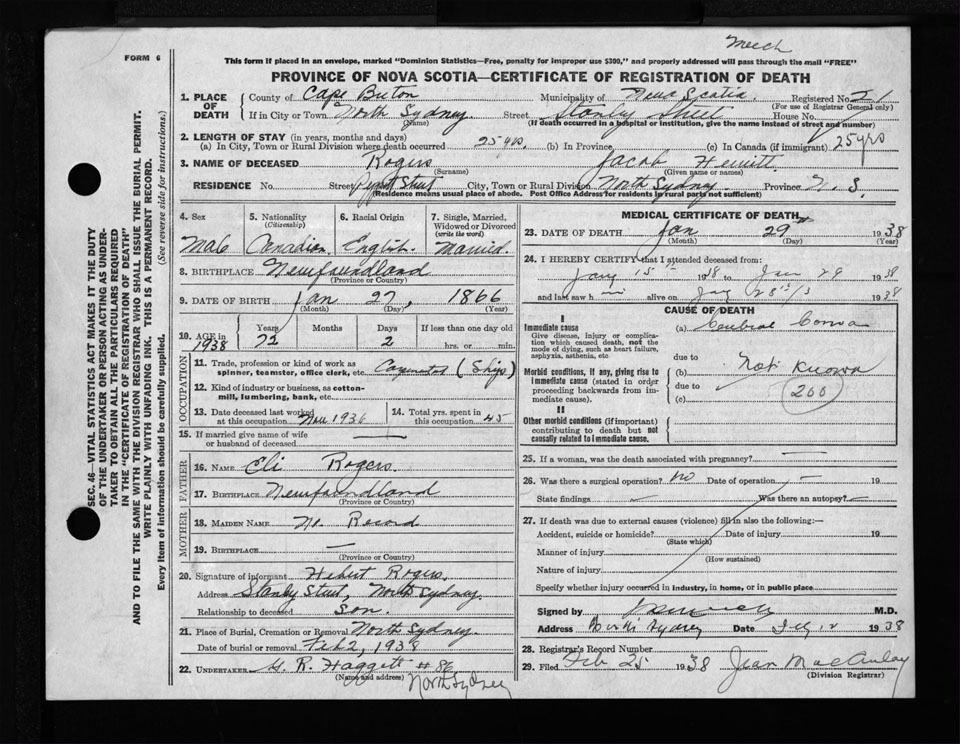 Meech
FORM 6
This form if placed in an envelope, marked "Dominion Statistics—Free, penalty for improper use $300," and properly addressed will pass through the mail "FREE"
PROVINCE OF NOVA SCOTIA—CERTIFICATE OF REGISTRATION OF DEATH
1. PLACE OF DEATH County of Cape Breton Municipality of Nova Scotia Registered No. 21
(For use of Registrar General only)
If in City or Town North Sydney Street Stanly Street House No.
(Name) (If death occurred in a hospital or institution, give the name instead of street and number)
2. LENGTH OF STAY (in years, months and days)
(a) In City, Town or Rural Division where death occurred 25 yrs. (b) In Province (c) In Canada (if immigrant) 25 yrs
3. NAME OF DECEASED Rogers Jacob Hewitt
(Surname) (Given name or names)
RESIDENCE No. Street Street City, Town or Rural Division North Sydney Province N. S.
(Residence means usual place of abode. Post Office Address for residents in rural parts not sufficient)
4. Sex 5. Nationality (Citizenship) 6. Racial Origin 7. Single, Married, Widowed or Divorced (write the word)
Male Canadian English Married
8. BIRTHPLACE Newfoundland
(Province or Country)
9. DATE OF BIRTH Jan 27, 1866
(Month) (Day) (Year)
10. AGE in 1938 Years 72 Months Days 2 If less than one day old hrs. or min.
OCCUPATION
11. Trade, profession or kind of work as spinner, teamster, office clerk, etc. (Ship)
12. Kind of industry or business, as cotton-mill, lumbering, bank, etc.
13. Date deceased last worked at this occupation Nov 1936 14. Total yrs. spent in this occupation 45
15. If married give name of wife or husband of deceased —
FATHER
16. NAME Eli Rogers.
17. BIRTHPLACE Newfoundland
(Province or Country)
MOTHER
18. MAIDEN NAME No Record
19. BIRTHPLACE —
(Province or Country)
20. Signature of informant Hebert Rogers.
Address Stanly Street, North Sydney.
Relationship to deceased Son.
21. Place of Burial, Cremation or Removal North Sydney.
Date of burial or removal Feb 2, 1938
22. UNDERTAKER G. R. Haggett # 86
(Name and address) North Sydney
MEDICAL CERTIFICATE OF DEATH
23. DATE OF DEATH Jan 29 1938
(Month) (Day) (Year)
24. I HEREBY CERTIFY that I attended deceased from:
Jany 15 1938 to Jan 29 1938
and last saw h alive on Jany 28 1938
CAUSE OF DEATH
I
Immediate cause
Give disease, injury or complication which caused death, not the mode of dying, such as heart failure, asphyxia, asthenia, etc
(a) Cerebral
due to
Morbid conditions, if any, giving rise to immediate cause (stated in order proceeding backwards from immediate cause).
(b) Not Known
due to
(c) 200
II
Other morbid conditions (if important) contributing to death but not causally related to immediate cause.
25. If a woman, was the death associated with pregnancy? —
26. Was there a surgical operation? no Date of operation — 19
State findings — Was there an autopsy? —
27. If death was due to external causes (violence) fill in also the following:—
Accident, suicide or homicide? Date of injury 19
(State which)
Manner of injury
(How sustained)
Nature of injury
Specify whether injury occurred in industry, in home, or in public place
Signed by M.D.
Address Sydney Date 1938
28. Registrar's Record Number
29. Filed Feb 25 1938 Jean MacAulay
(Division Registrar)
SEC. 46—VITAL STATISTICS ACT MAKES IT THE DUTY
OF THE UNDERTAKER OR PERSON ACTING AS UNDER-
TAKER TO OBTAIN ALL THE PARTICULARS REQUIRED
IN THE "CERTIFICATE OF REGISTRATION OF DEATH"
AND TO FILE THE SAME WITH THE DIVISION REGISTRAR WHO SHALL ISSUE THE BURIAL PERMIT.
WRITE PLAINLY WITH UNFADING INK. THIS IS A PERMANENT RECORD.
Every item of information should be carefully supplied. (See reverse side for instructions.)